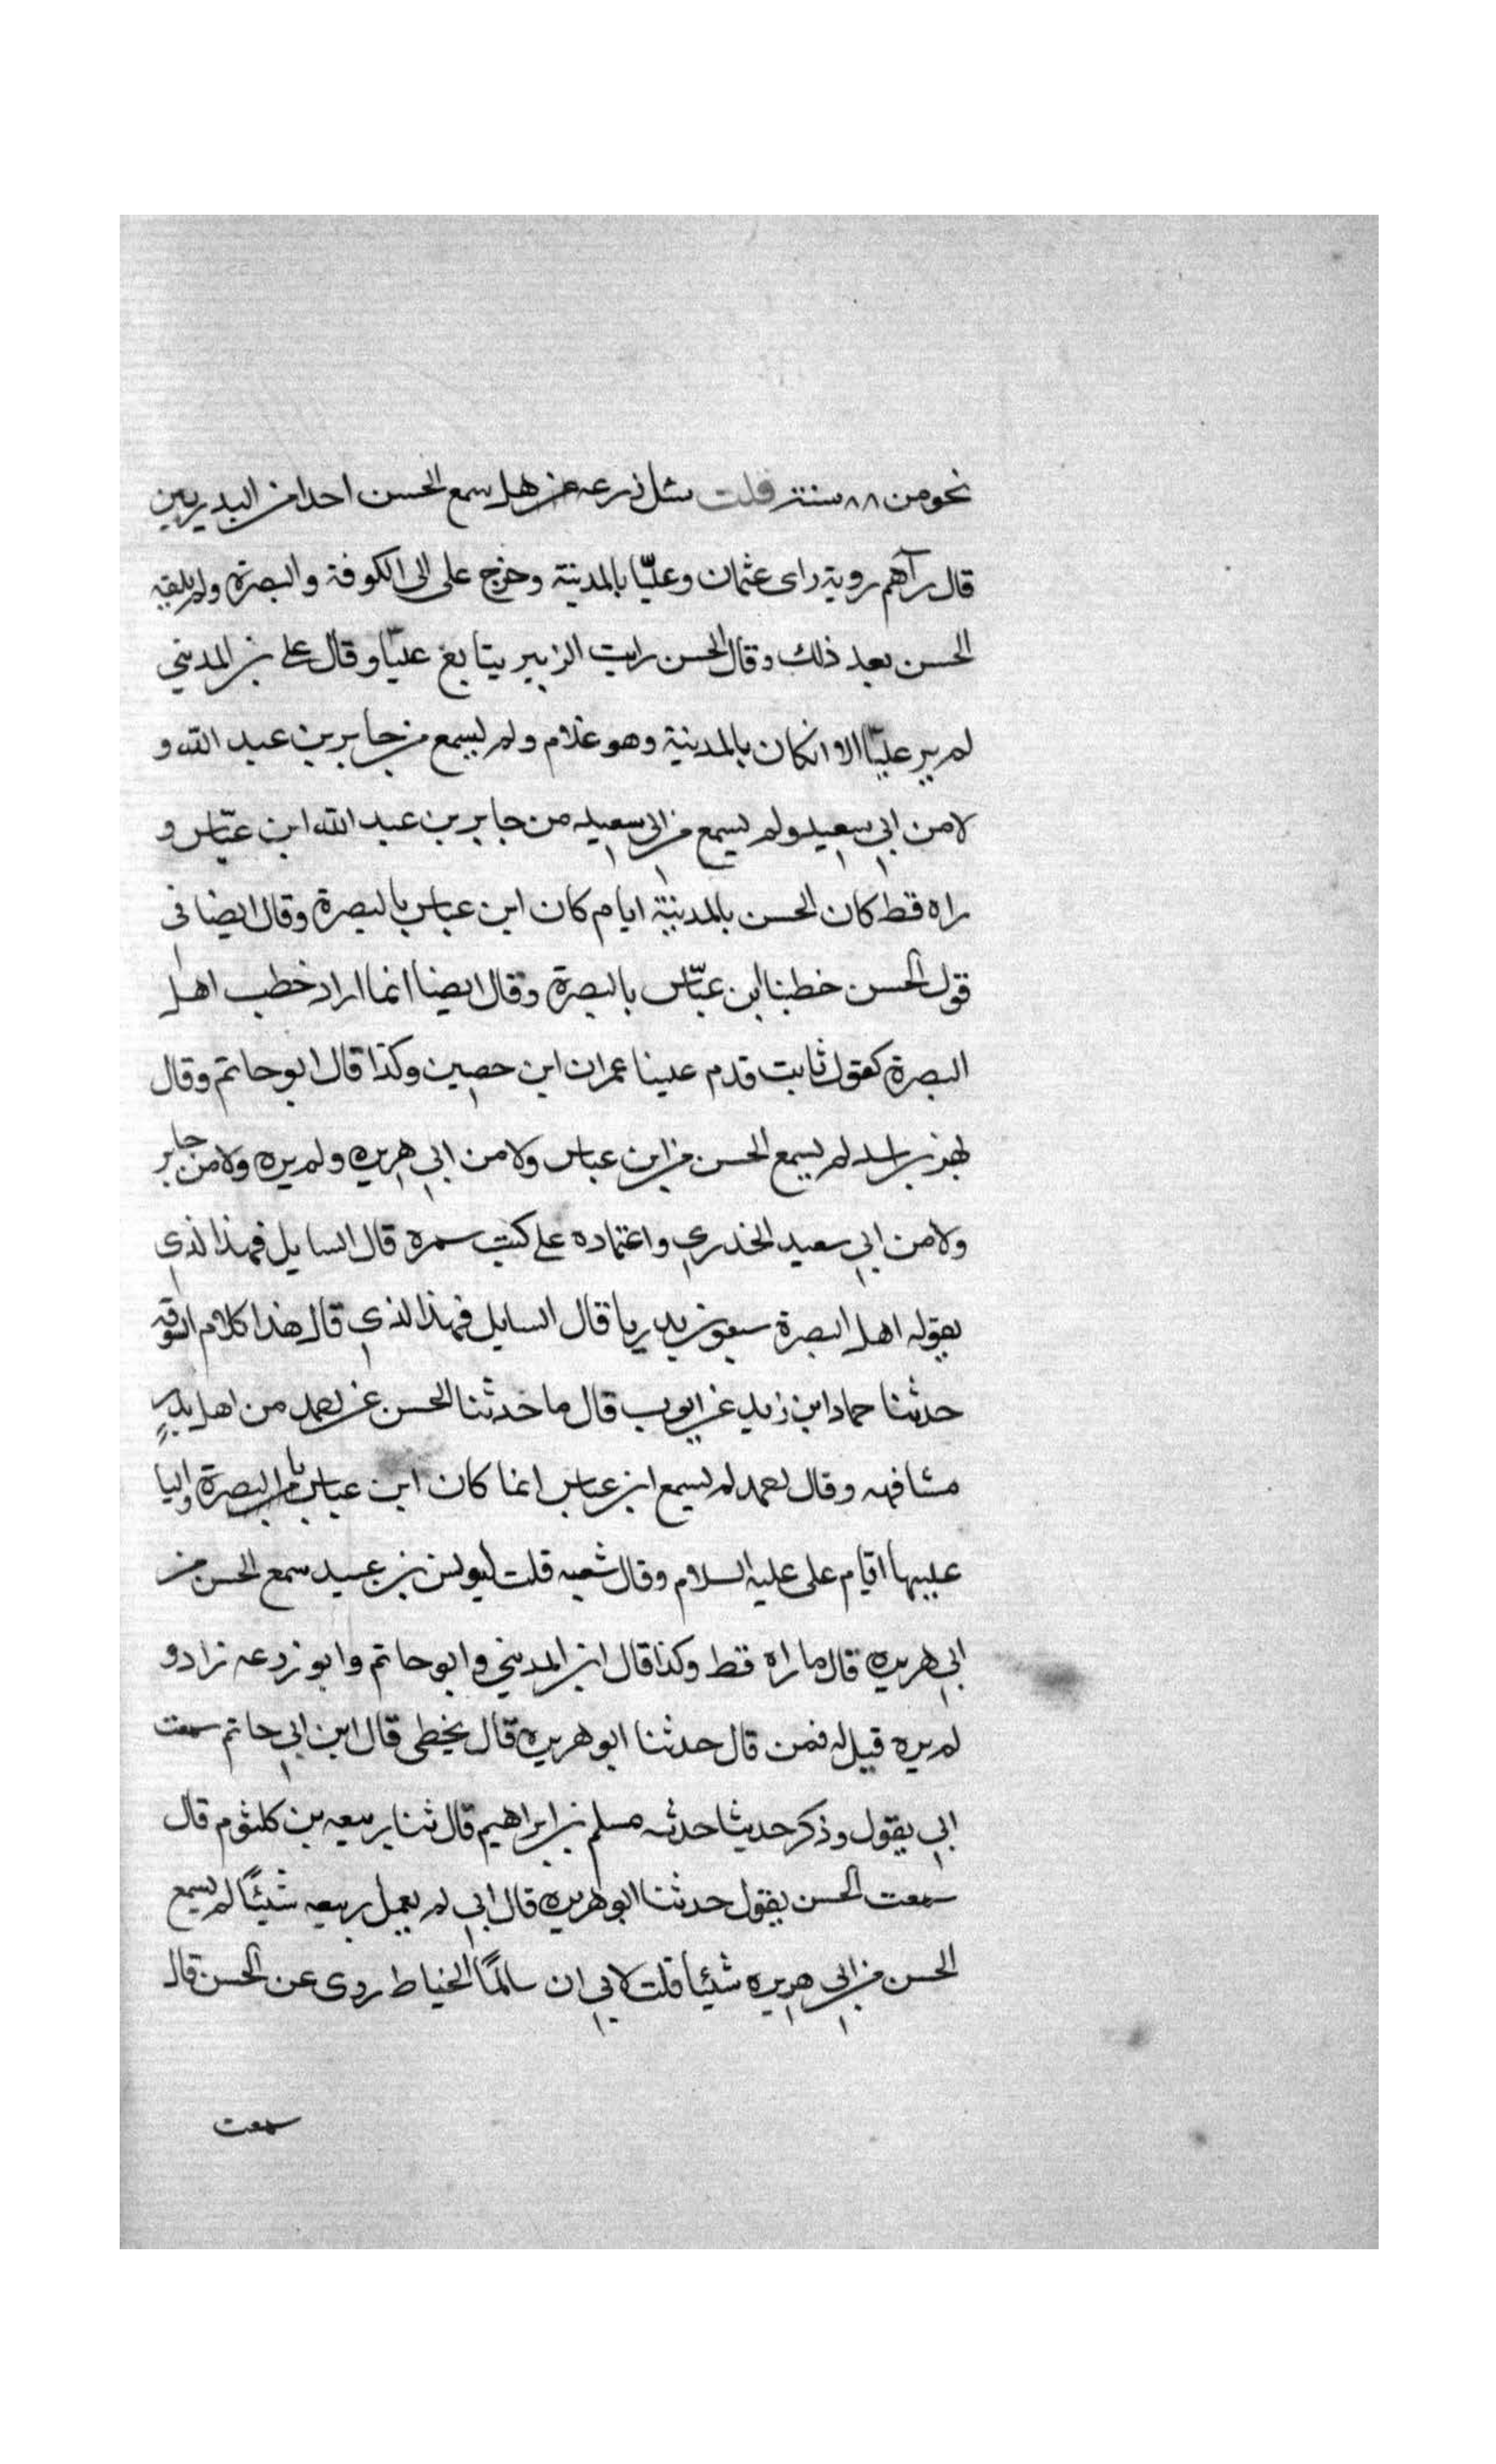 نحو من ٨٨ سنة قلت سئل زرعه عن هل سمع الحسن احدا من البدريين
قال رآهم روية راى عثمان وعليّا بالمدينة وخرج على الى الكوفة والبصرة ولم يلقه
الحسن بعد ذلك وقال الحسن رايت الزبير يتابع عليّا وقال على بن المديني
لم ير عليّا الا ان كان بالمدينة وهو غلام ولم يسمع من جابر بن عبد الله و
لا من ابي سعيد ولم يسمع من ابي سعيد من جابر بن عبد الله ابن عبّاس و
راه قط كان الحسن بالمدينة ايام كان ابن عباس بالبصرة وقال ايضا فى
قول الحسن خطبنا ابن عبّاس بالبصرة وقال ايضا انما اراد خطب اهل
البصرة كقول ثابت قدم علينا عمران ابن حصين وكذا قال ابو حاتم وقال
بهز بن اسد لم يسمع الحسن من ابن عباس ولا من ابي هريره ولم يره ولا من جابر
ولا من ابي سعيد الخدري واعتماده على كتب سمرة قال السايل فهذا الذي
يقوله اهل البصرة سبعون بدريا قال السايل فهذا الذي قال هذا كلام السوقه
حدثنا حماد ابن زيد عن ايوب قال ما حدثنا الحسن عن احد من اهل بدر
مشافهه وقال احمد لم يسمع ابن عباس انما كان ابن عباس بالبصرة واليا
عليها ايّام على عليه السلام وقال شعبه قلت ليونس بن عبيد سمع الحسن من
ابي هريره قال ما راه قط وكذا قال ابن المديني وابو حاتم وابو زرعه زاد و
لم يره قيل له فمن قال حدثنا ابو هريره قال يخطى قال ابن ابي حاتم سمعت
ابي يقول وذكر حديثا حدثه مسلم بن ابراهيم قال ثنا ربيعه بن كلثوم قال
سمعت الحسن يقول حدثنا ابو هريره قال ابي لم يعمل ربيعه شيئًا لم يسمع
الحسن من ابي هريره شيئا قلت لابي ان سالمًا الخياط روى عن الحسن قال
سمعت